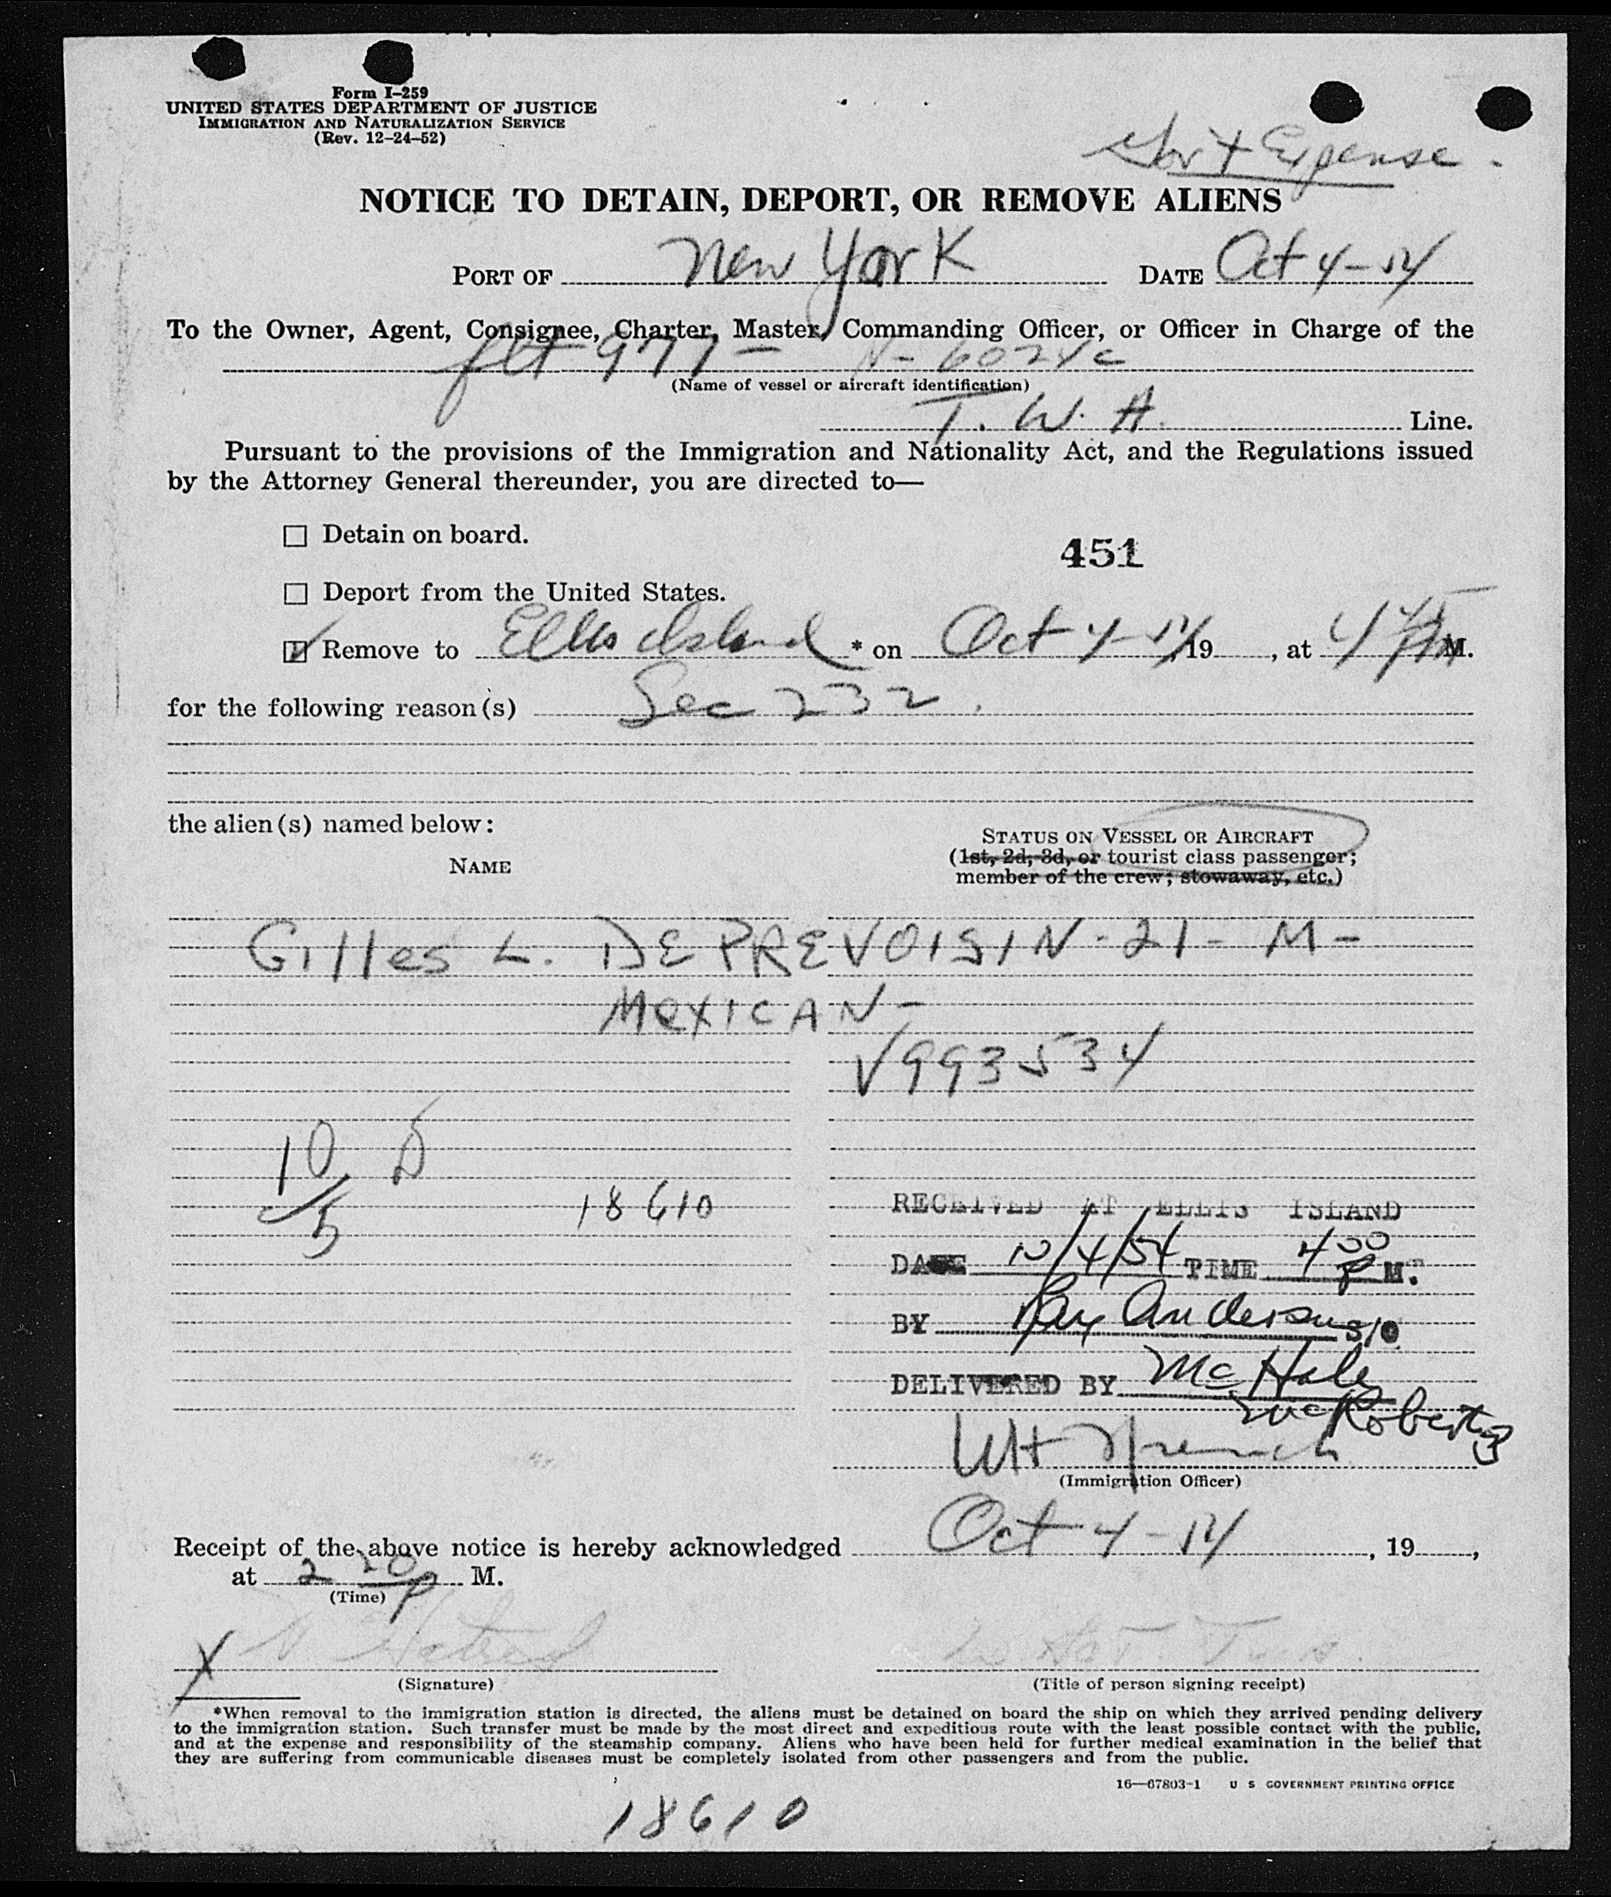 Form I-259
UNITED STATES DEPARTMENT OF JUSTICE
IMMIGRATION AND NATURALIZATION SERVICE
(Rev. 12-24-52)
Gov't Expense -
NOTICE TO DETAIN, DEPORT, OR REMOVE ALIENS
PORT OF New York DATE Oct 4-54
To the Owner, Agent, Consignee, Charter, Master, Commanding Officer, or Officer in Charge of the
flt 977 - N-6024c
(Name of vessel or aircraft identification)
T. W. A. Line.
Pursuant to the provisions of the Immigration and Nationality Act, and the Regulations issued
by the Attorney General thereunder, you are directed to—
☐ Detain on board.
451
☐ Deport from the United States.
☑ Remove to Ellis Island * on Oct 4-54 19 , at 4 45 PM M.
for the following reason(s) Sec 232.
the alien(s) named below:
NAME
STATUS ON VESSEL OR AIRCRAFT
(1st, 2d, 3d, or tourist class passenger;
member of the crew; stowaway, etc.)
Gilles L. DEPREVOISIN - 21 - M -
MEXICAN -
V993534
10/5 D
18610
RECEIVED AT ELLIS ISLAND
DATE 10/4/54 TIME 4 00 P M.
BY Ray Anderson S/O
DELIVERED BY McHale
McRoberts
WH
(Immigration Officer)
Receipt of the above notice is hereby acknowledged Oct 4-54, 19 ,
at 2 20 P M.
(Time)
X
(Signature)
(Title of person signing receipt)
*When removal to the immigration station is directed, the aliens must be detained on board the ship on which they arrived pending delivery
to the immigration station. Such transfer must be made by the most direct and expeditious route with the least possible contact with the public,
and at the expense and responsibility of the steamship company. Aliens who have been held for further medical examination in the belief that
they are suffering from communicable diseases must be completely isolated from other passengers and from the public.
16—67803-1 U S GOVERNMENT PRINTING OFFICE
18610